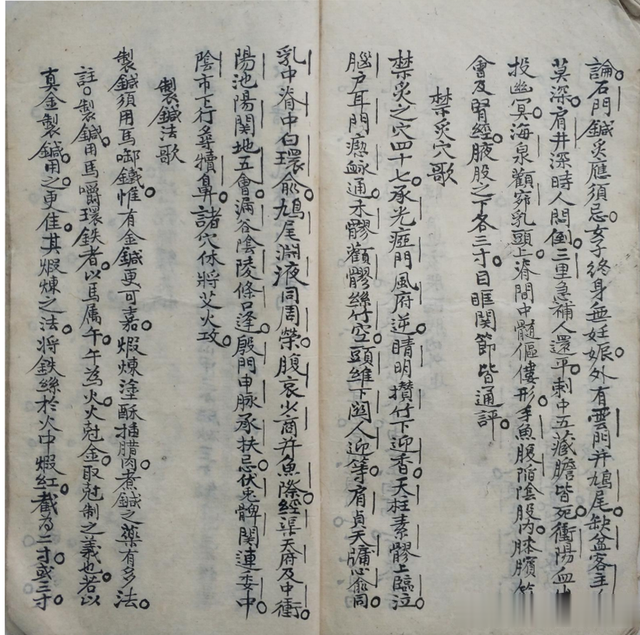 論石門鍼灸應須忌女子終身無妊娠外有雲門并鳩尾缺盆客主人
莫深肩井深時人悶倒三里急補人還平刺中五藏膽皆死衝陽血出
投幽冥海泉顴窌乳頭上脊間中髓傴僂形手魚腹陷陰股內膝臏筋
會及腎經腋股之下各三寸目眶関節皆通評
禁灸穴歌
禁灸之穴四十七承光瘂門風府逆睛明攢竹下迎香天柱素髎上臨泣
腦户耳門瘈脉通禾髎顴髎絲竹空頭維下関人迎等肩貞天牖心俞同
乳中脊中白環俞鳩尾淵液同周榮腹哀少商并魚際經渠天府及中衝
陽池陽関地五會漏谷陰陵條口逢殷門申脉承扶忌伏兔髀関連委中
陰市下行尋犢鼻諸穴休將艾火攻
製鍼法歌
製鍼須用馬啣鐵惟有金鍼更可嘉煅煉塗酥插腊肉煮鍼之藥有多法
註製鍼用馬嚼環鉄者以馬属午午為火火尅金取尅制之義也若以
真金製鍼用之更佳其煅煉之法將鉄絲於火中煅紅截為二寸或三寸